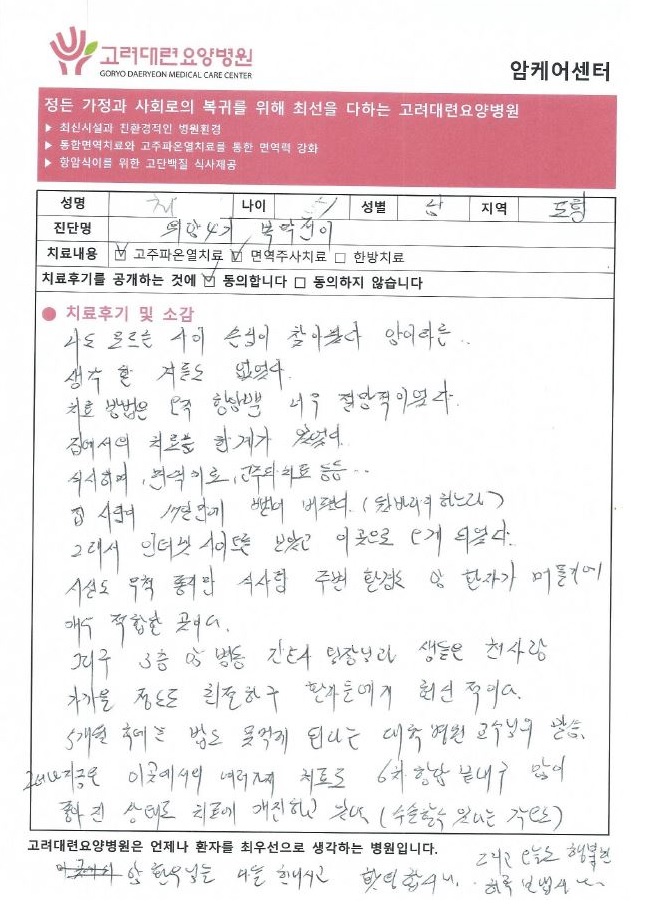 고려대련요양병원
GORYO DAERYEON MEDICAL CARE CENTER
암케어센터
정든 가정과 사회로의 복귀를 위해 최선을 다하는 고려대련요양병원
▶ 최신시설과 친환경적인 병원환경
▶ 통합면역치료와 고주파온열치료를 통한 면역력 강화
▶ 항암식이를 위한 고단백질 식사제공
성명 나이 성별 남 지역
진단명 위암4기 복막전이
치료내용 ☑ 고주파온열치료 ☑ 면역주사치료 □ 한방치료
치료후기를 공개하는 것에 ☑ 동의합니다 □ 동의하지 않습니다
● 치료후기 및 소감
나도 모르는 사이 손님이 찾아왔다 암이라는..
생각 할 겨를도 없었다.
치료 방법은 오직 항암뿐 너무 절망적이었다.
집에서의 치료는 한계가 있었다.
식사하며, 면역치료, 고주파치료 등등...
집 사람이 17일만에 뻗어 버렸다. (뒷바라지 하느라)
그래서 인터넷 사이트를 보았고 이곳으로 오게 되었다.
시설도 무척 좋지만 식사랑 주변 환경도 암 환자가 머물기에
매우 적합한 곳이다.
그리구 3층 암 병동 간호사 팀장님과 샘들은 천사랑
가까울 정도로 친절하구 환자들에게 헌신 적이다.
5개월 후에는 밥도 못먹게 된다는 대학 병원 교수님의 말씀.
그러나 지금은 이곳에서의 여러가지 치료로 6차 항암 끝내구 많이
좋아 진 상태로 치료에 매진하고 있다 (수술할수 있다는 각오로)
고려대련요양병원은 언제나 환자를 최우선으로 생각하는 병원입니다.
암 환우님들 다들 힘내시고 핫팅합시다. 그리고 오늘도 행복한
하루 보냅시다~